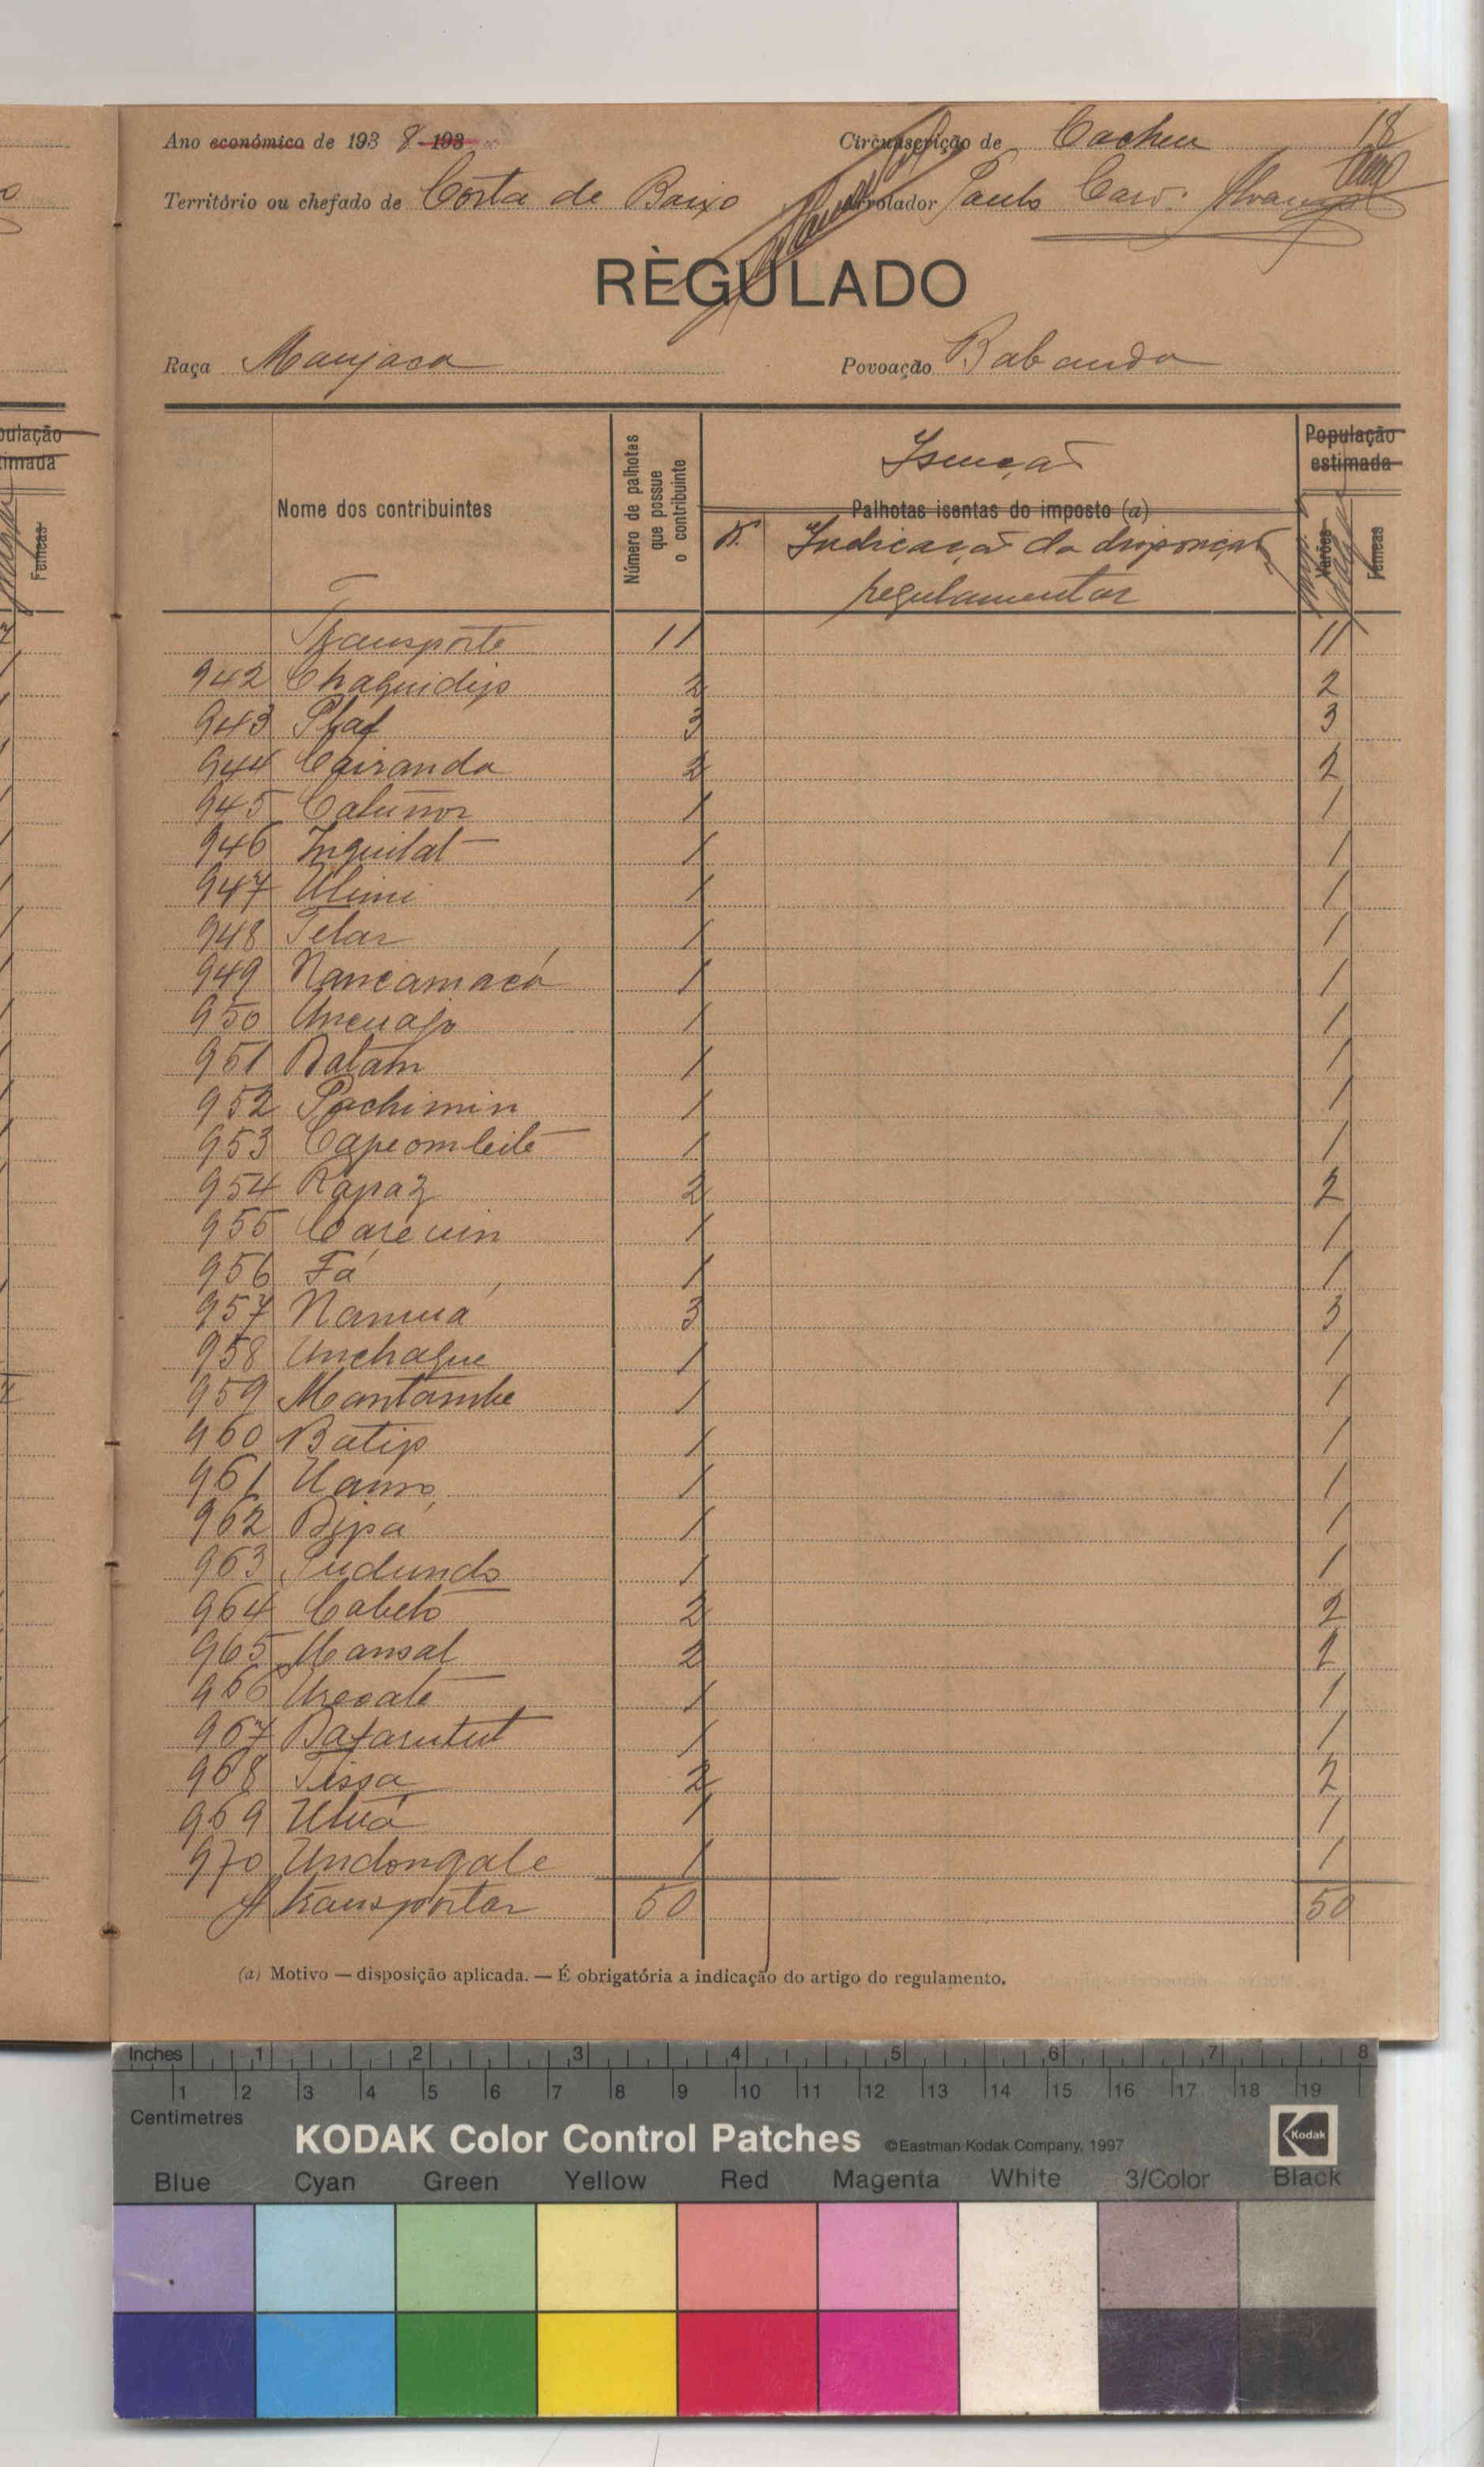 Ano económico de 193 8-193
Circunscrição de Cacheu 18
Território ou chefado de Costa de Baixo
Arrolador Paulo
REGULADO
Raça Manjaca
Povoação Babanda
Nome dos contribuintes
Número de palhotas que possue o contribuinte
Isenção
Palhotas isentas do imposto (a)
Indicação da disposição
regulamentar
População estimada
Varões
Fêmeas
Transporte 11 11
942 Chaquidip 2 2
943 Pfaf 3 3
944 Cairanda 2 2
945 1 1
946 Inquilat 1 1
947 Ulimi 1 1
948 Telar 1 1
949 Nancamacá 1 1
950 Uncuajo 1 1
951 Batam 1 1
952 Pachimin 1 1
953 Capeombeite 1 1
954 Rapaz 2 2
955 Carecuin 1 1
956 Fá 1 1
957 Namuá 3 3
958 Unchague 1 1
959 Mantambe 1 1
960 Batip 1 1
961 Uamo 1 1
962 Bipá 1 1
963 1 1
964 Cabeto 2 2
965 Mansal 2 2
966 1 1
967 1 1
968 Tissa 2 2
969 Utuá 1 1
970 Undongale 1 1
A transportar 50 50
(a) Motivo — disposição aplicada. — É obrigatória a indicação do artigo do regulamento.
pulação
timada
Fêmeas
Inches 1 2 3 4 5 6 7 8
1 2 3 4 5 6 7 8 9 10 11 12 13 14 15 16 17 18 19
Centimetres
KODAK Color Control Patches ©Eastman Kodak Company, 1997 Kodak
Blue Cyan Green Yellow Red Magenta White 3/Color Black